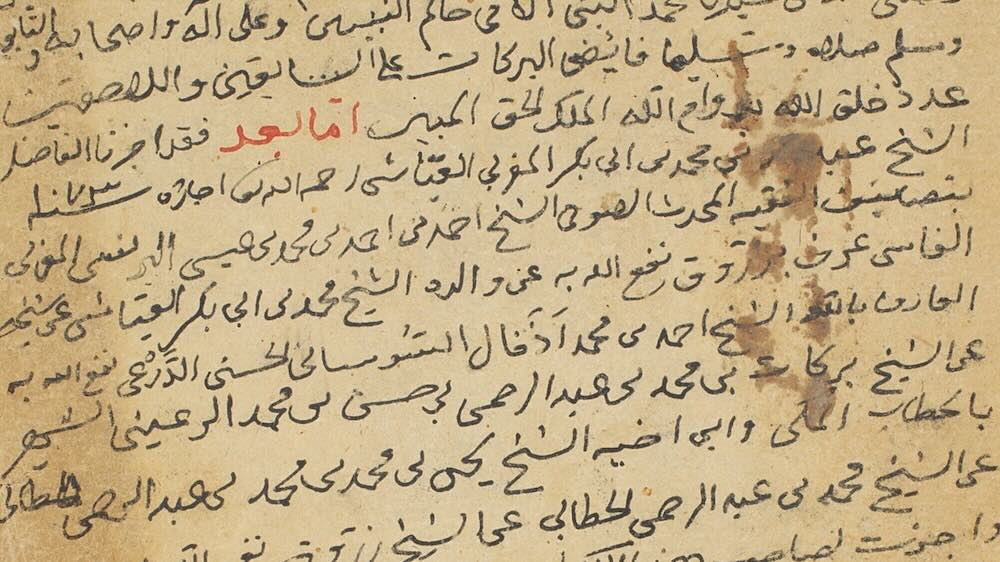 محمد النبي الامي خاتم النبيين وعلى آله واصحابه
وسلم صلاة وتسليما فائضي البركات على السابقين واللاحقين
عدد خلق الله بدوام الله الملك الحق المبين اما بعد فقد اخبرنا الفاضل
الشيخ عبد بن محمد بن ابي بكر المغربي العياشي رحمه الله اجازة سنة ١٠٧٣
بتصانيف الفقيه المحدث الصوفي الشيخ احمد بن احمد بن محمد بن عيسى البرنسي المغربي
الفاسي عرف بزروق نفع الله به عن والده الشيخ محمد بن ابي بكر العياشي عن شيخه
العارف بالله الشيخ احمد بن محمد اَدَفال السوساني الحسني الدَرْعي نفع الله به
عن الشيخ بركات بن محمد بن عبد الرحمن بن حسن بن محمد الرعيني الشهير
بالحطاب المكي وابن اخيه الشيخ يحيى بن محمد بن محمد بن عبد الرحمن الحطابي
عن الشيخ محمد بن عبد الرحمن الحطابي عن الشيخ زروق
واجزت لصاحب